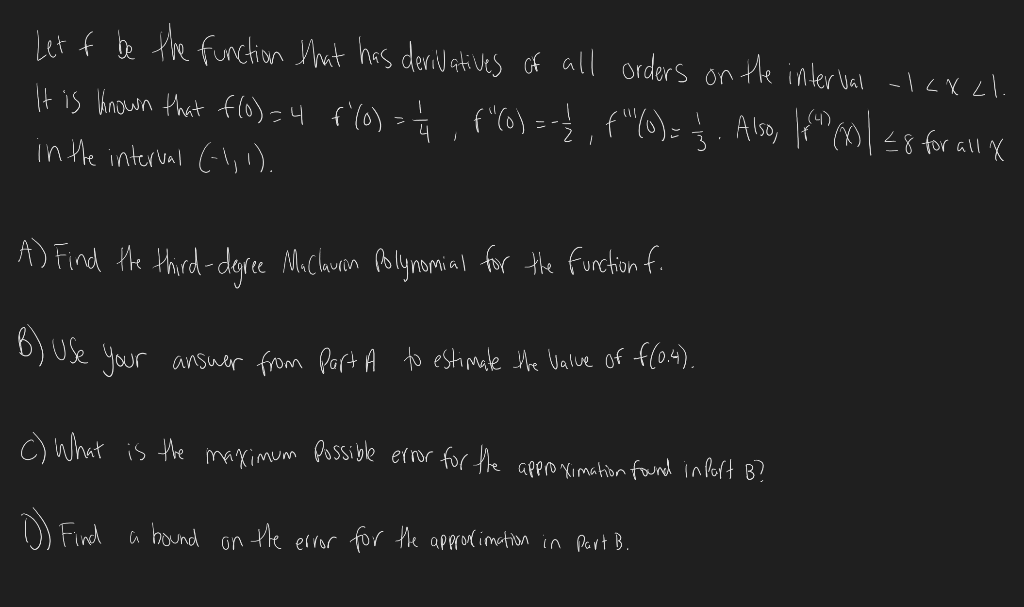 Let f be the function that has derivatives of all orders on the interval -1 < x < 1.
It is known that f(0) = 4 f'(0) = 1/4, f''(0) = -1/2, f'''(0) = 1/3. Also, |f⁽⁴⁾(x)| ≤ 8 for all x
in the interval (-1, 1).
A) Find the third-degree Maclauron Polynomial for the function f.
B) Use your answer from Part A to estimate the value of f(0.4).
C) What is the maximum possible error for the approximation found in Part B?
D) Find a bound on the error for the approximation in Part B.